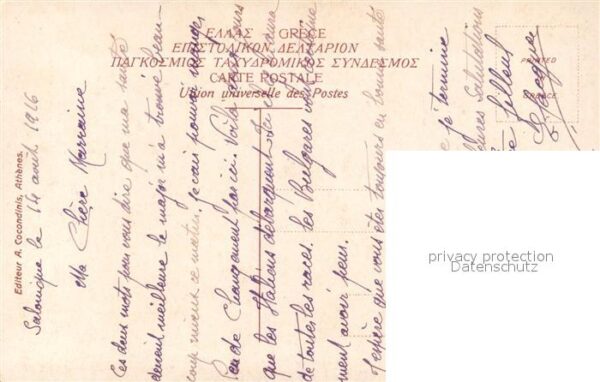 ΕΛΛΑΣ GRÈCE
ΕΠΙΣΤΟΛΙΚΟΝ ΔΕΛΤΑΡΙΟΝ
ΠΑΓΚΟΣΜΙΟΣ ΤΑΧΥΔΡΟΜΙΚΟΣ ΣΥΝΔΕΣΜΟΣ
CARTE POSTALE
Union universelle des Postes
Editeur A. Cocondinis, Athènes.
PRINTED
FRANCE
Salonique le 14 août 1916
Ma Chère Marraine
Ces deux mots pour vous dire que ma santé
devient meilleure le major m'a trouvé beau-
coup mieux ce matin. je vais pouvoir manger
Peu de Changement par ici. Voila
que les Italiens débarquent.
de toutes les races. les Bulgares vont
ment avoir peur.
J'espère que vous êtes toujours en bonne santé
je termine
Salutations
Filleul
privacy protection
Datenschutz